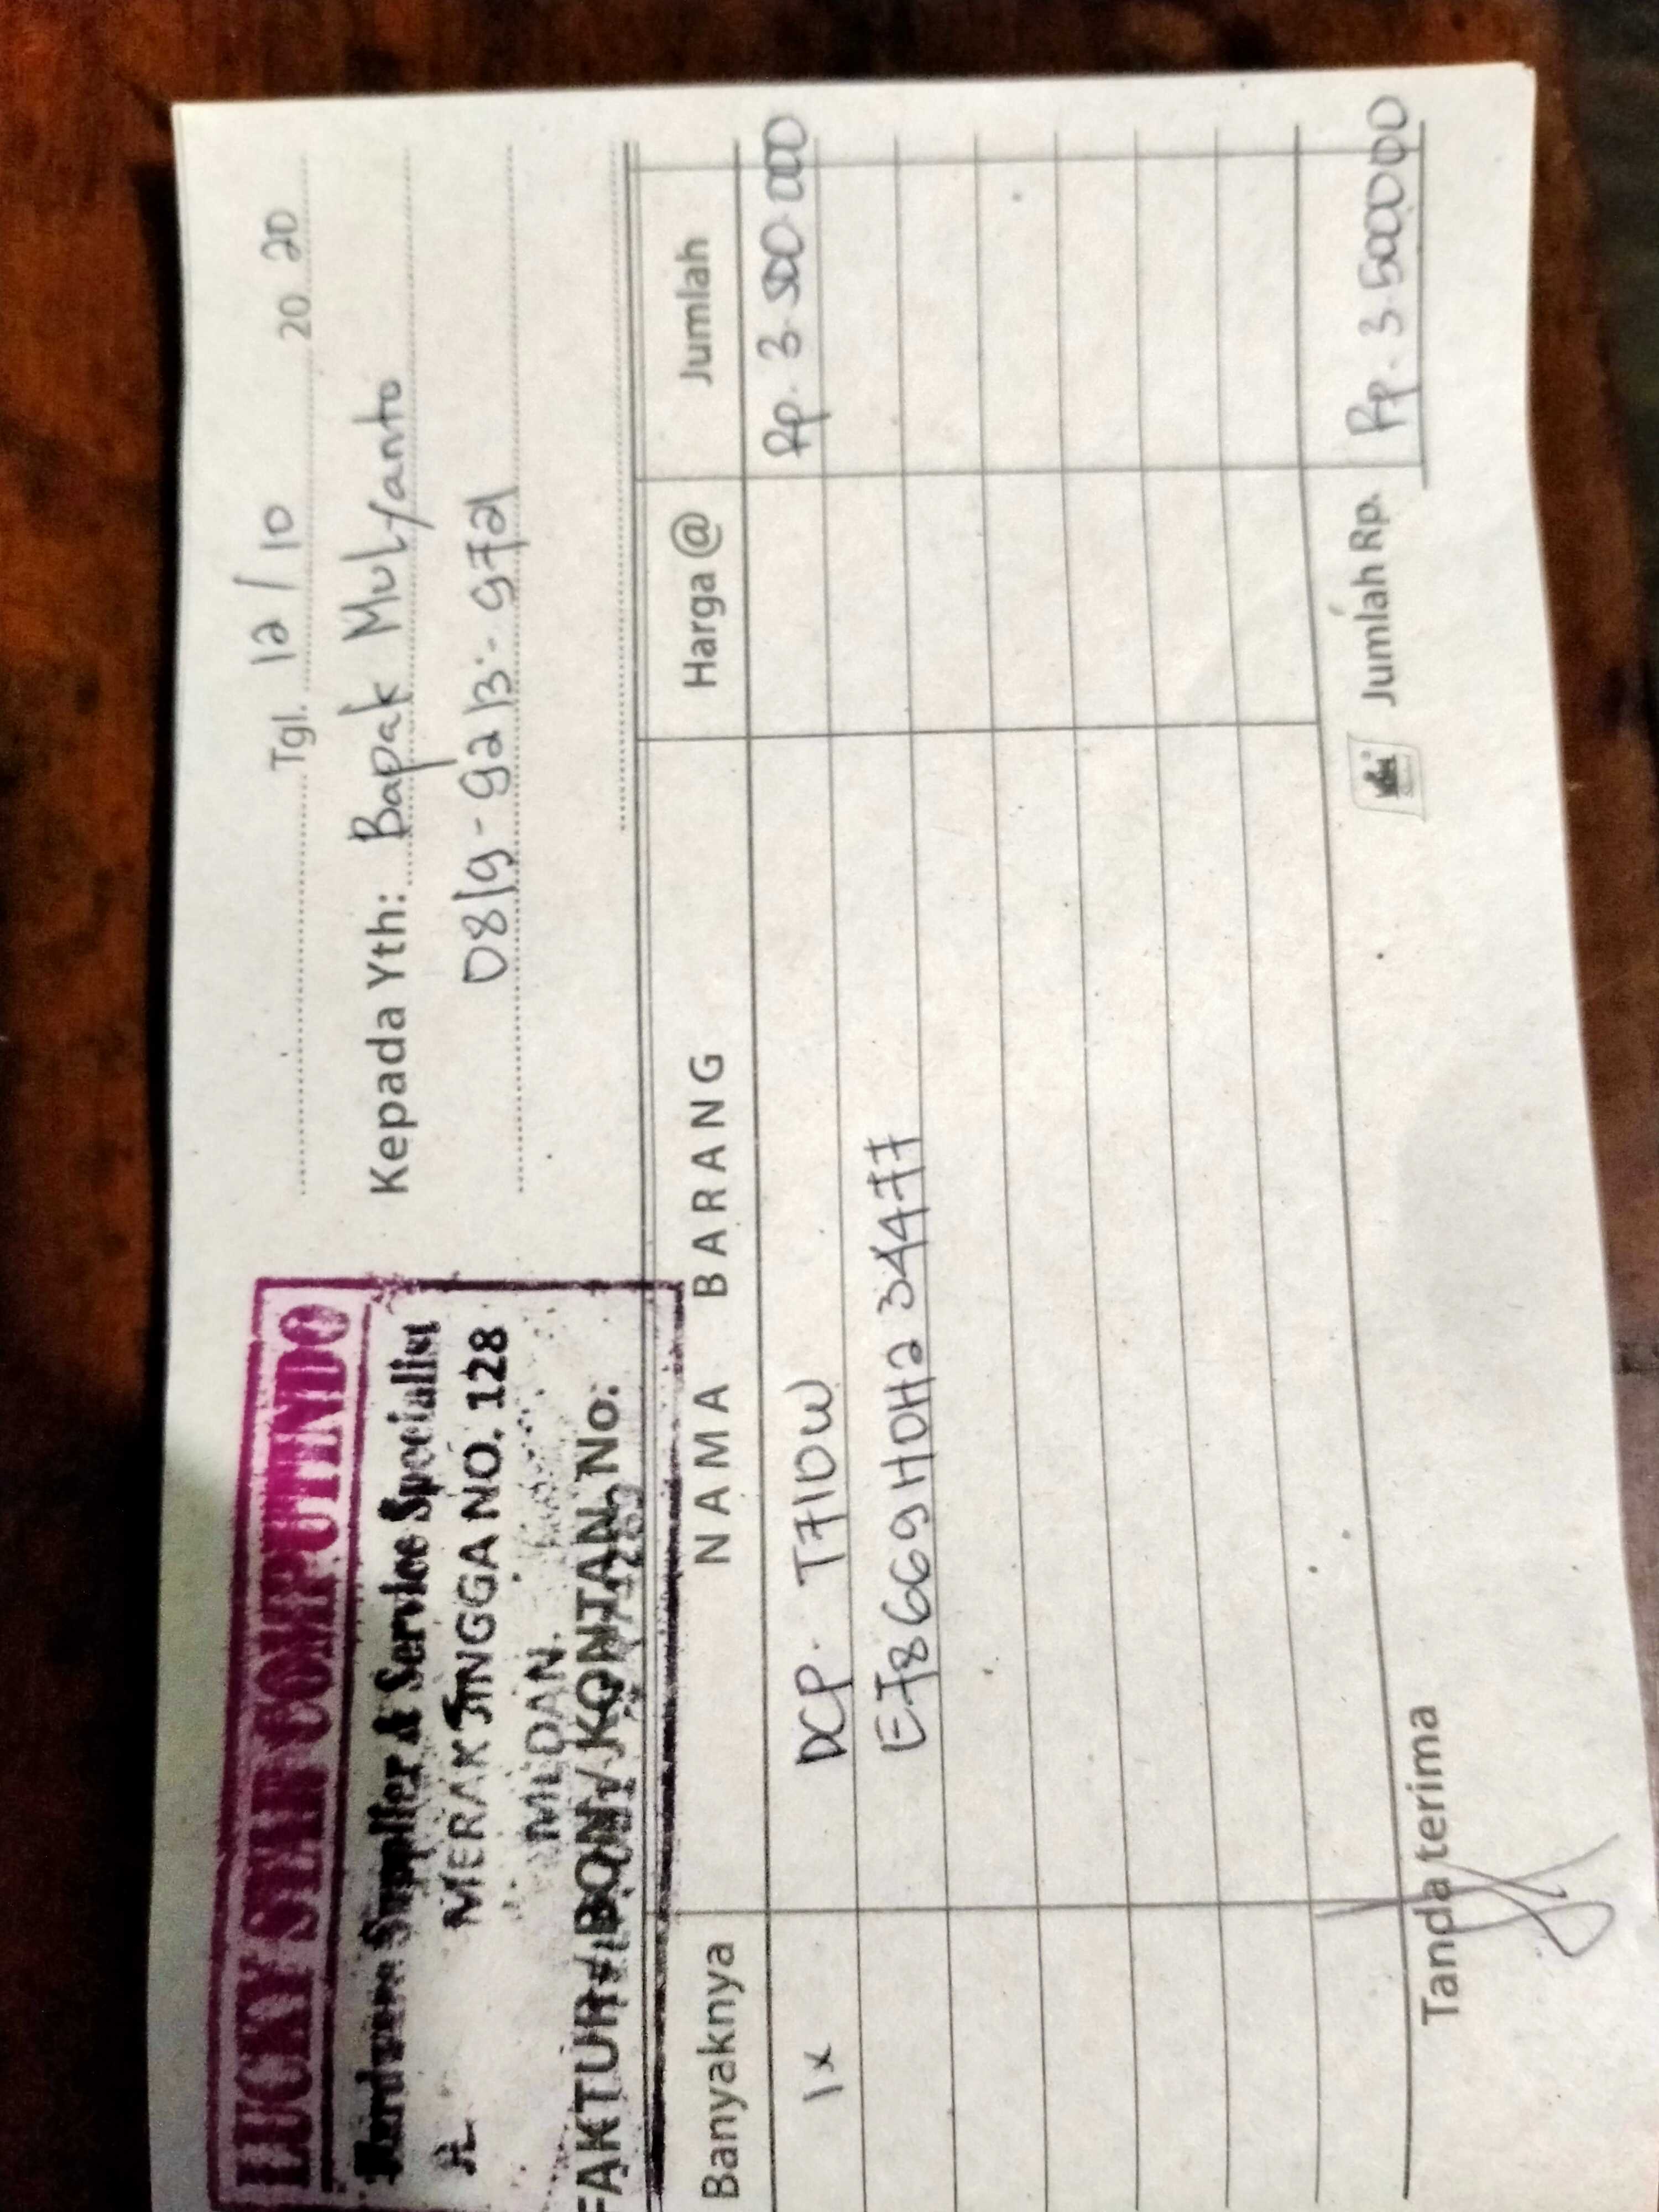 LUCKY STAR COMPUTINDO
Hardware Supplier & Service Specialist
JL MERAK JINGGA NO. 128
MEDAN
FAKTUR / BON / KONTAN No:
Tgl. 12/10 20 20
Kepada Yth: Bapak Mulyanto
0819-9213-972
Banyaknya NAMA BARANG Harga @ Jumlah
1x DCP. T710W Rp. 3.500.000
E78669H0H234477
Tanda terima Jumlah Rp. Rp. 3.500000